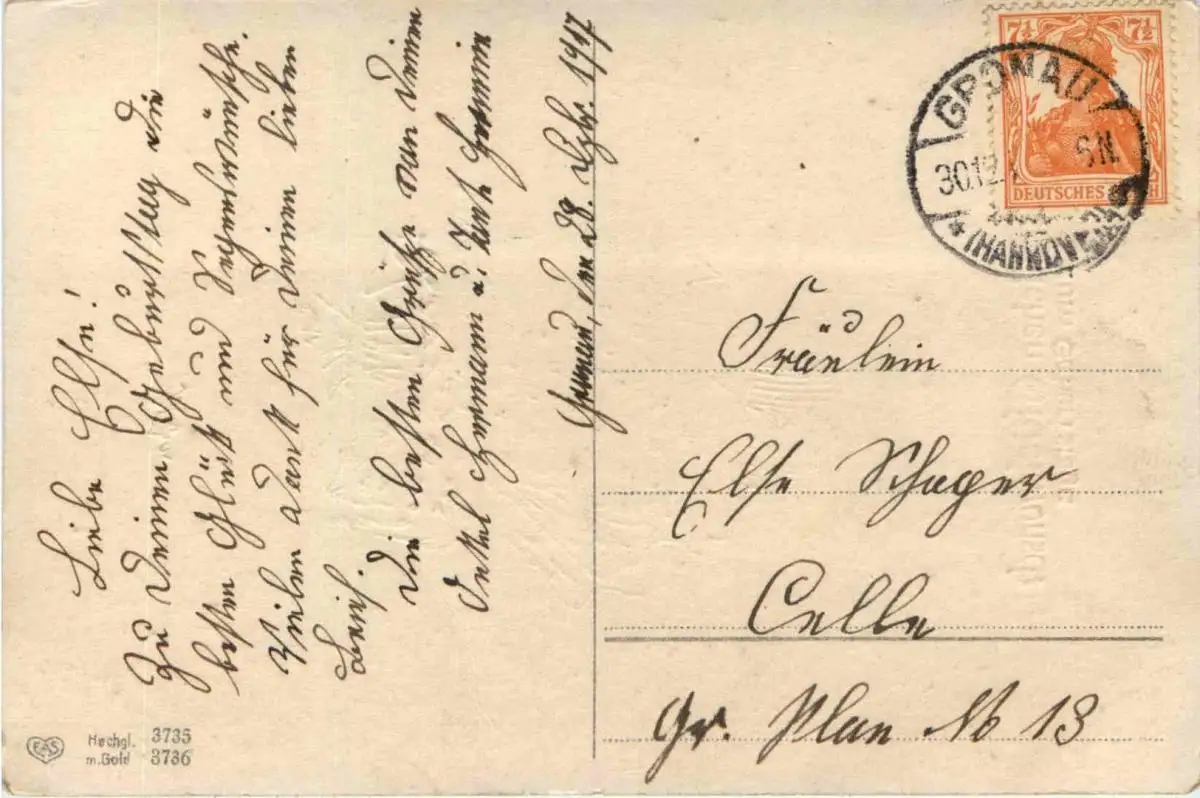 Liebe Else!
Zu Deinem Geburtstag die
besten Glück und Segenswünsche.
Vielen Dank für Deinen lieben
Brief.
Die besten Grüße von Deinem
Onkel Hermann u. Tante
Gronau, den 28. Dezbr. 1917
7½ 7½
DEUTSCHES REICH
GRONAU
30.12.
8N.
* (HANNOVER)
Fräulein
Else Schaper
Celle
Gr. Plan No 13
EAS
Hochgl. 3735
m. Gold 3736